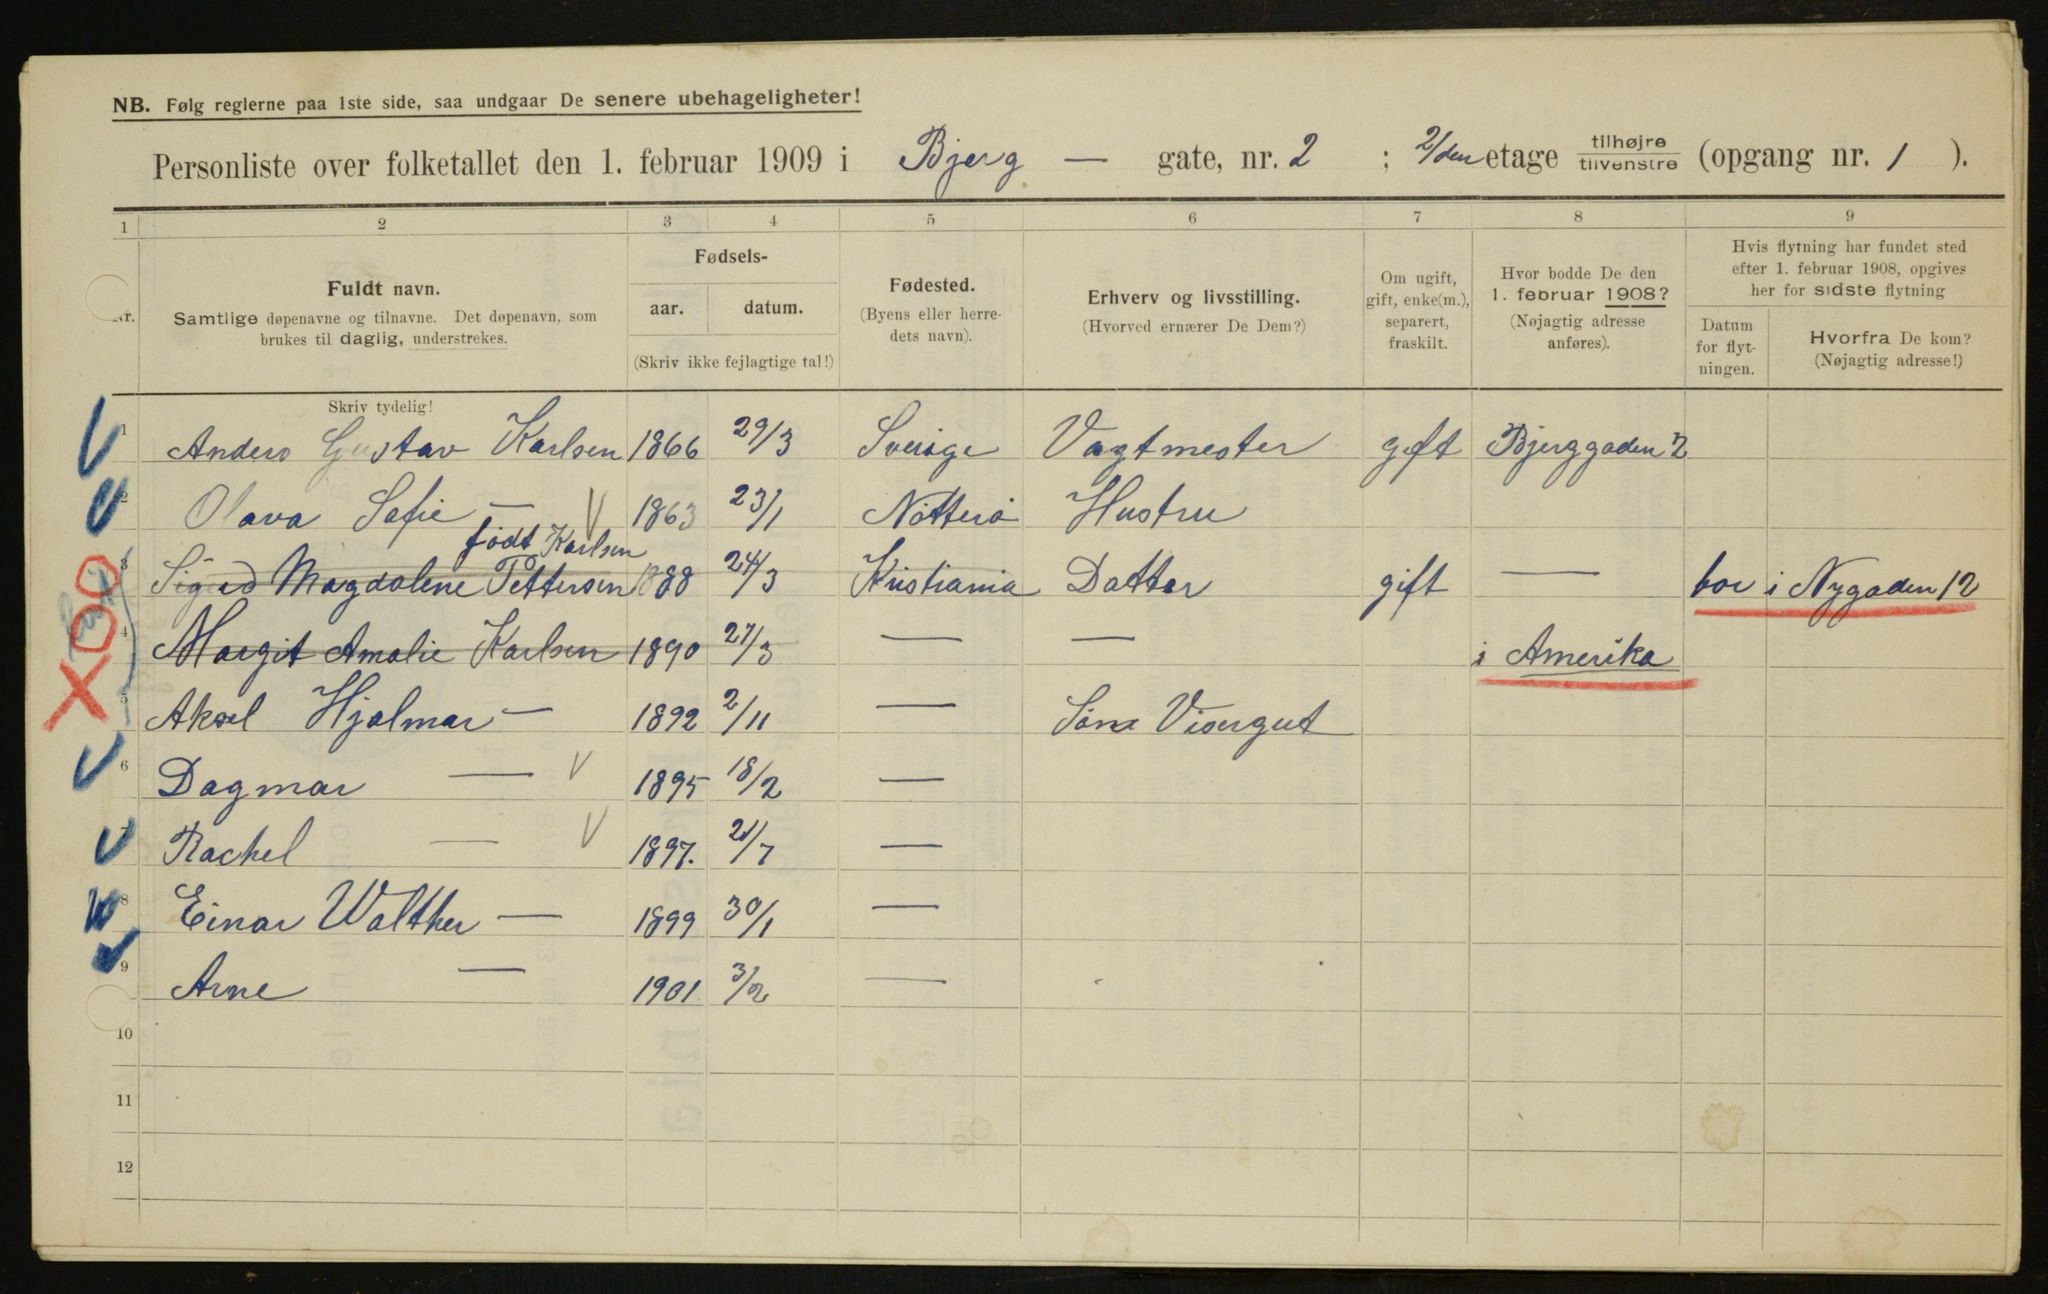 NB. Følg reglerne paa 1ste side, saa undgaar De senere ubehageligheter!
Personliste over folketallet den 1. februar 1909 i Bjerg — gate, nr. 2 ; 2/den etage tilhøjre tilvenstre (opgang nr. 1 ).
1 2 3 4 5 6 7 8 9
Nr.
Fuldt navn.
Samtlige døpenavne og tilnavne. Det døpenavn, som
brukes til daglig, understrekes.
Fødsels-
aar. datum.
(Skriv ikke fejlagtige tal!)
Fødested.
(Byens eller herre-
dets navn).
Erhverv og livsstilling.
(Hvorved ernærer De Dem?)
Om ugift,
gift, enke(m.),
separert,
fraskilt.
Hvor bodde De den
1. februar 1908?
(Nøjagtig adresse
anføres).
Hvis flytning har fundet sted
efter 1. februar 1908, opgives
her for sidste flytning
Datum
for flyt-
ningen.
Hvorfra De kom?
(Nøjagtig adresse!)
Skriv tydelig!
1 Anders Gustav Karlsen 1866 29/3 Sverige Vagtmester gift Bjerggaden 2
2 Olava Sofie — V 1863 23/1 Nötterö Hustru
født Karlsen
3 Sigrid Magdalene Pettersen 1888 24/3 Kristiania Datter gift — bor i Nygaden 12
4 Margit Amalie Karlsen 1890 27/3 — — i Amerika
5 Aksel Hjalmar — 1892 2/11 — Sön Visergut
6 Dagmar — V 1895 18/2 —
7 Rachel — V 1897. 21/7 —
8 Einar Walther — 1899 30/1 —
9 Arne — 1901 3/2 —
10
11
12